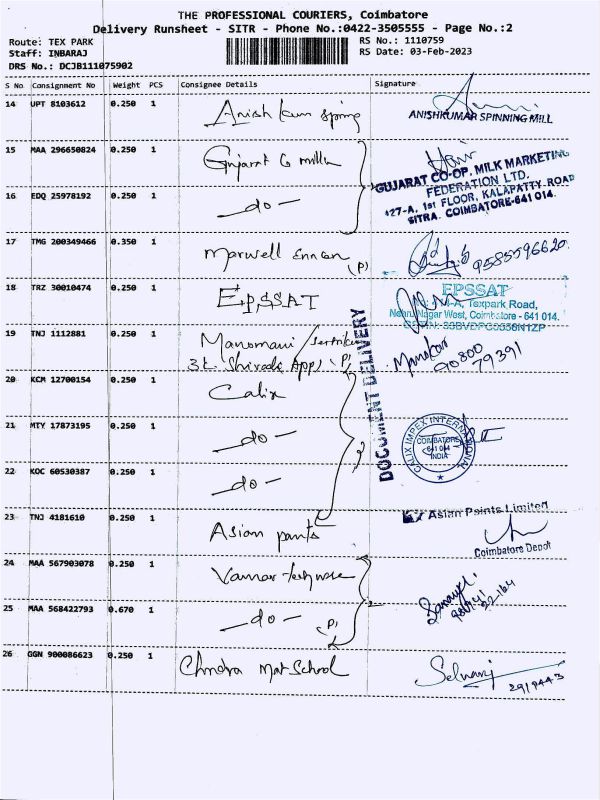 THE PROFESSIONAL COURIERS, Coimbatore
Delivery Runsheet - SITR - Phone No.:0422-3505555 - Page No.:2
Route: TEX PARK RS No.: 1110759
Staff: INBARAJ RS Date: 03-Feb-2023
DRS No.: DCJB111075902
S No Consignment No Weight PCS Consignee Details Signature
14 UPT 8103612 0.250 1 Anish kum spinng
ANISHKUMAR SPINNING MILL
15 MAA 296650824 0.250 1 Gujarat Co milk
GUJARAT CO-OP. MILK MARKETING
FEDERATION LTD.
16 EDQ 25978192 0.250 1 -do-
1st FLOOR, KALAPATTY ROAD
SITRA. COIMBATORE-641 014.
17 TMG 200349466 0.350 1 (P)
9585596620
18 TRZ 30010474 0.250 1 EPSSAT
EPSSAT
Texpark Road,
Nehru Nagar West, Coimbatore - 641 014.
19 TNJ 1112881 0.250 1 Manomani
90800
79391
DOCUMENT DELIVERY
20 KCM 12700154 0.250 1 Calix
21 MTY 17873195 0.250 1 -do-
CALIX IMPEX INTERNATIONAL
COIMBATORE
641 014
INDIA
22 KOC 60530387 0.250 1 -do-
23 TNJ 4181610 0.250 1 Asian paints
Asian Paints Limited
Coimbatore Depot
24 MAA 567903078 0.250 1
25 MAA 568422793 0.670 1 -do- (P)
26 GGN 900086623 0.250 1 Chndra Mat School
Selvaraj